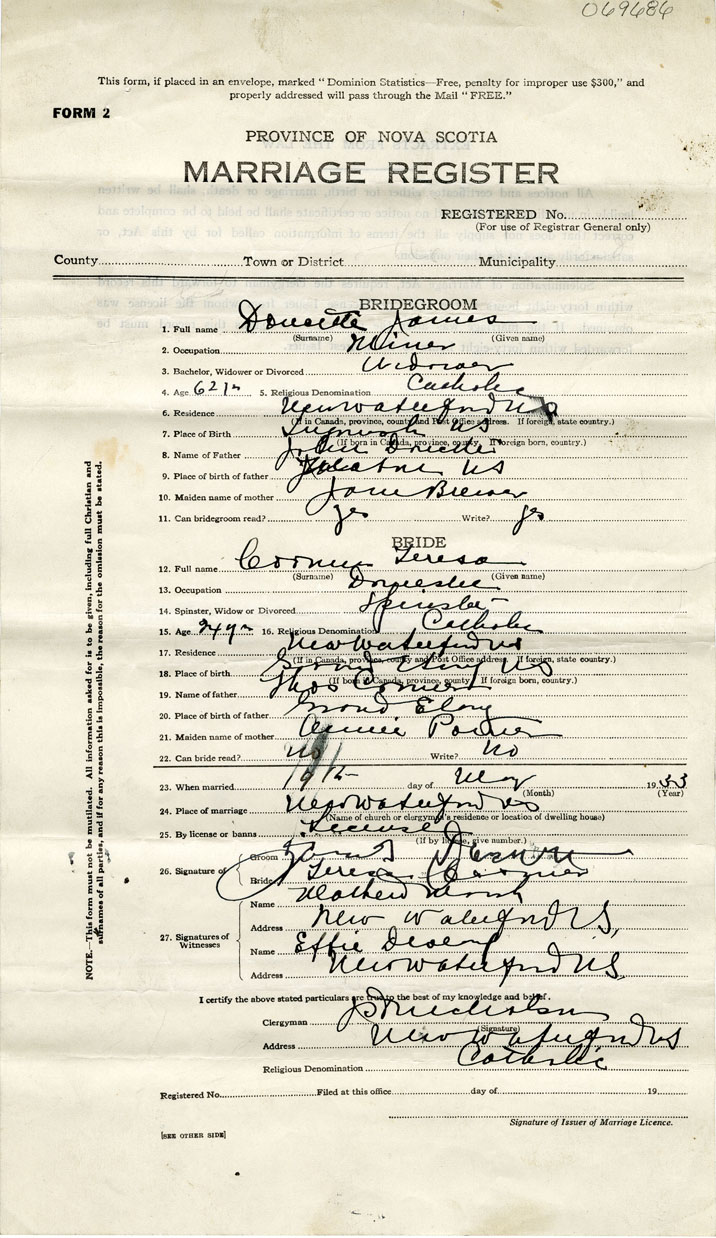 069686
This form, if placed in an envelope, marked "Dominion Statistics—Free, penalty for improper use $300," and
properly addressed will pass through the Mail "FREE."
FORM 2
PROVINCE OF NOVA SCOTIA
MARRIAGE REGISTER
REGISTERED No.
(For use of Registrar General only)
County Town or District Municipality
BRIDEGROOM
1. Full name Doucette James
(Surname) (Given name)
2. Occupation Miner
3. Bachelor, Widower or Divorced Widower
4. Age 62 yrs 5. Religious Denomination Catholic
6. Residence New Waterford NS
(If in Canada, province, county and Post Office address. If foreign, state country.)
7. Place of Birth NS
(If born in Canada, province, county. If foreign born, country.)
8. Name of Father John Doucette
9. Place of birth of father NS
10. Maiden name of mother Jane Brewer
11. Can bridegroom read? yes Write? yes
BRIDE
12. Full name Cormier Teresa
(Surname) (Given name)
13. Occupation Domestic
14. Spinster, Widow or Divorced Spinster
15. Age 24 yrs 16. Religious Denomination Catholic
17. Residence New Waterford NS
(If in Canada, province, county and Post Office address. If foreign, state country.)
18. Place of birth Grand Etang NS
(If born in Canada, province, county. If foreign born, country.)
19. Name of father Thos Cormier
20. Place of birth of father Grand Etang
21. Maiden name of mother Annie
22. Can bride read? no Write? No
23. When married day of May 1933
(Month) (Year)
24. Place of marriage New Waterford NS
(Name of church or clergyman's residence or location of dwelling house)
25. By license or banns License
(If by license, give number.)
26. Signature of Groom James
Bride Teresa Cormier
27. Signatures of Witnesses
Name Mathew
Address New Waterford NS,
Name Effie
Address New Waterford NS
I certify the above stated particulars are true to the best of my knowledge and belief.
Clergyman Nicholson
(Signature)
Address New Waterford NS
Religious Denomination Catholic
Registered No. Filed at this office day of 19
Signature of Issuer of Marriage Licence.
[SEE OTHER SIDE]
NOTE.—This form must not be mutilated. All information asked for is to be given, including full Christian and
surnames of all parties, and if for any reason this is impossible, the reason for the omission must be stated.